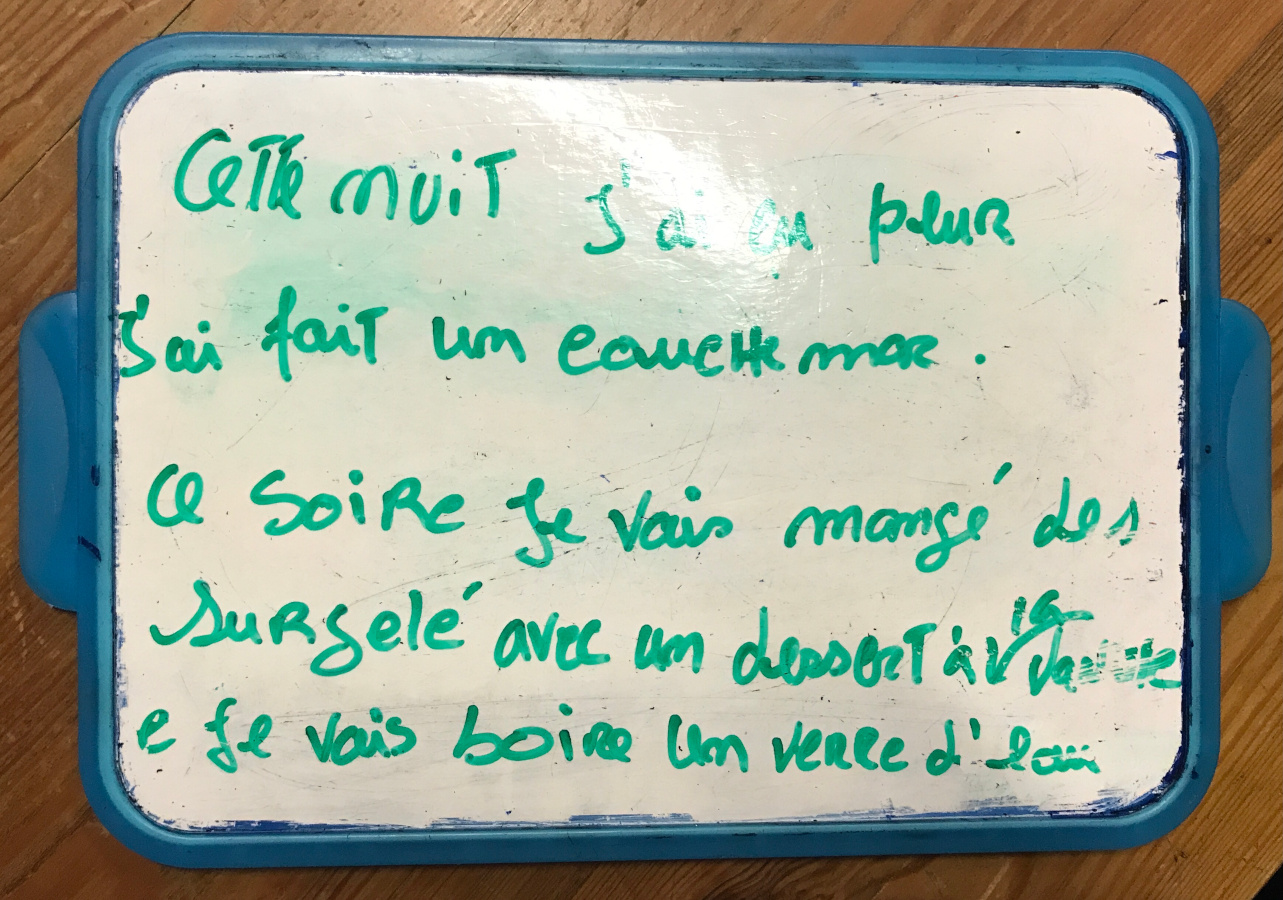 Cette nuit j'ai eu peur
J'ai fait un cauchemar.
Ce soire je vais mangé des
surgelé avec un dessert à la
e je vais boire un verre d'eau